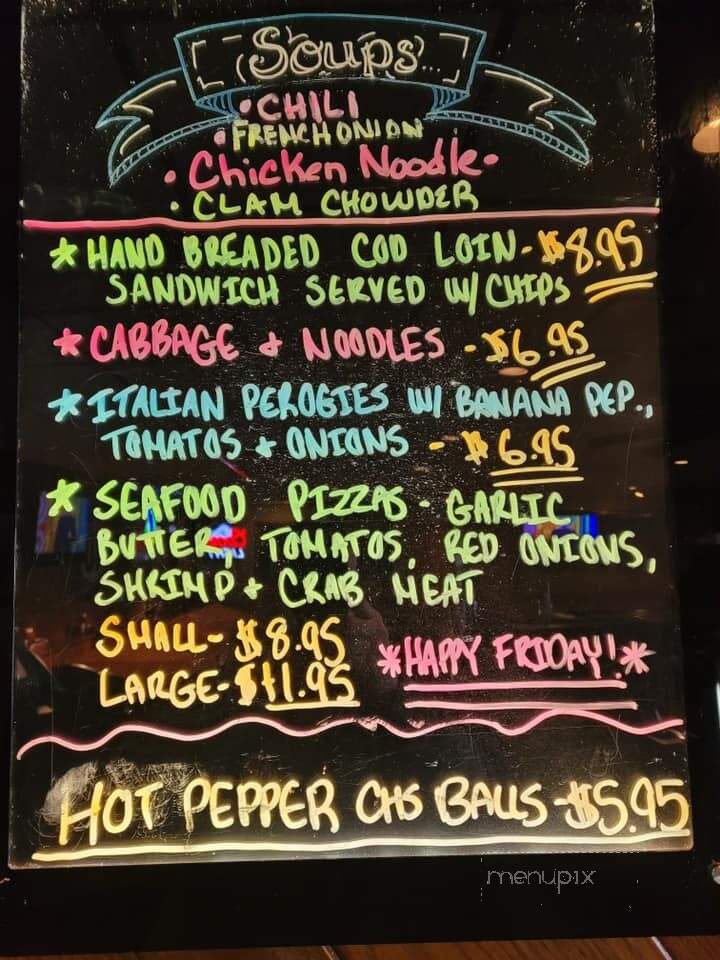 Soups
• CHILI
• FRENCH ONION
• Chicken Noodle •
• CLAM CHOWDER
* HAND BREADED COD LOIN - $8.95
SANDWICH SERVED W/ CHIPS
* CABBAGE & NOODLES - $6.95
* ITALIAN PEROGIES W/ BANANA PEP.,
TOMATOS & ONIONS - $6.95
* SEAFOOD PIZZAS - GARLIC
BUTTER, TOMATOS, RED ONIONS,
SHRIMP & CRAB MEAT
SMALL - $8.95
LARGE - $11.95
*HAPPY FRIDAY!*
HOT PEPPER CHS BALLS - $5.95
menupix